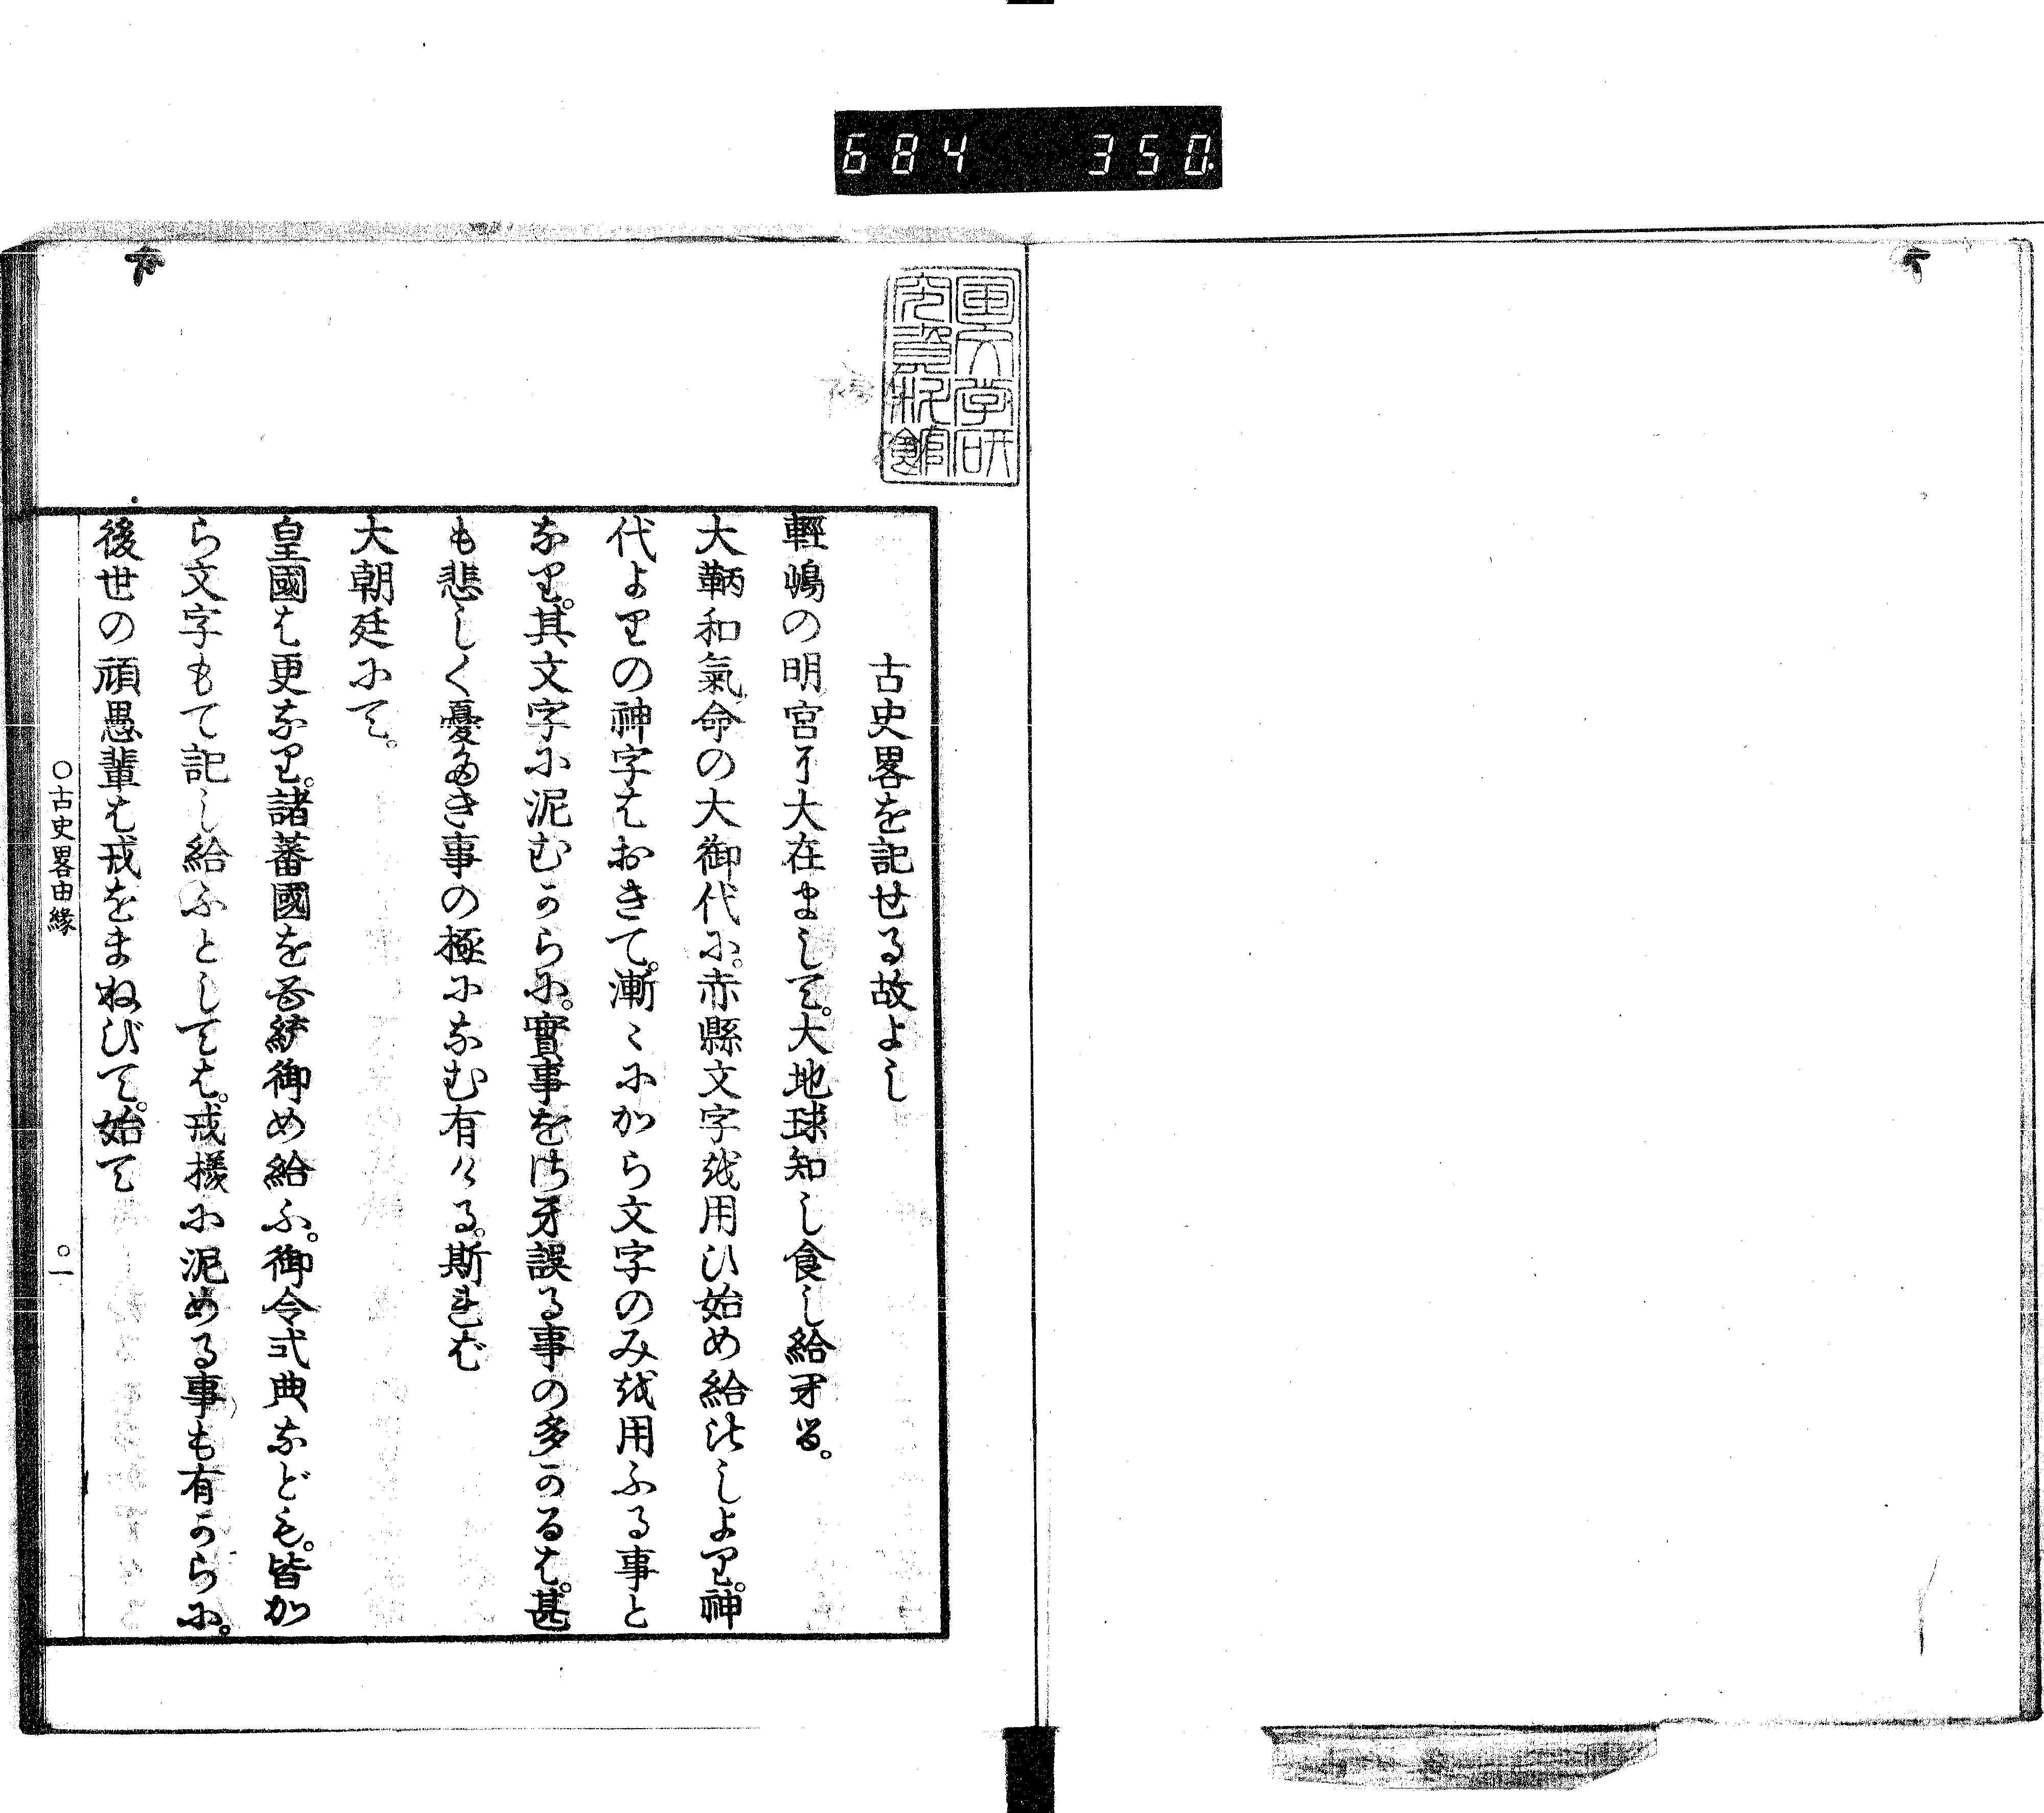 684 350.
国文学研
究資料館
古史畧を記せる故よし
輕嶋の明宮爾大在まして。大地球知し食し給ひる。
大鞆和氣命の大御代に。赤縣文字越用ひ始め給ひしより。神
代よりの神字はおきて。漸〻にから文字のみ越用ふる事と
なり。其文字に泥むからに。實事をひが誤る事の多かるは。甚
も悲しく憂たき事の極になむ有ける。斯れば
大朝廷にて。
皇國は更なり。諸蕃國を召統御め給ふ。御令式典なども。皆か
ら文字もて記し給ふとしては。戎樣に泥める事も有からに。
後世の頑愚輩は戎をまねびて。始て
○古史畧由縁 ○一